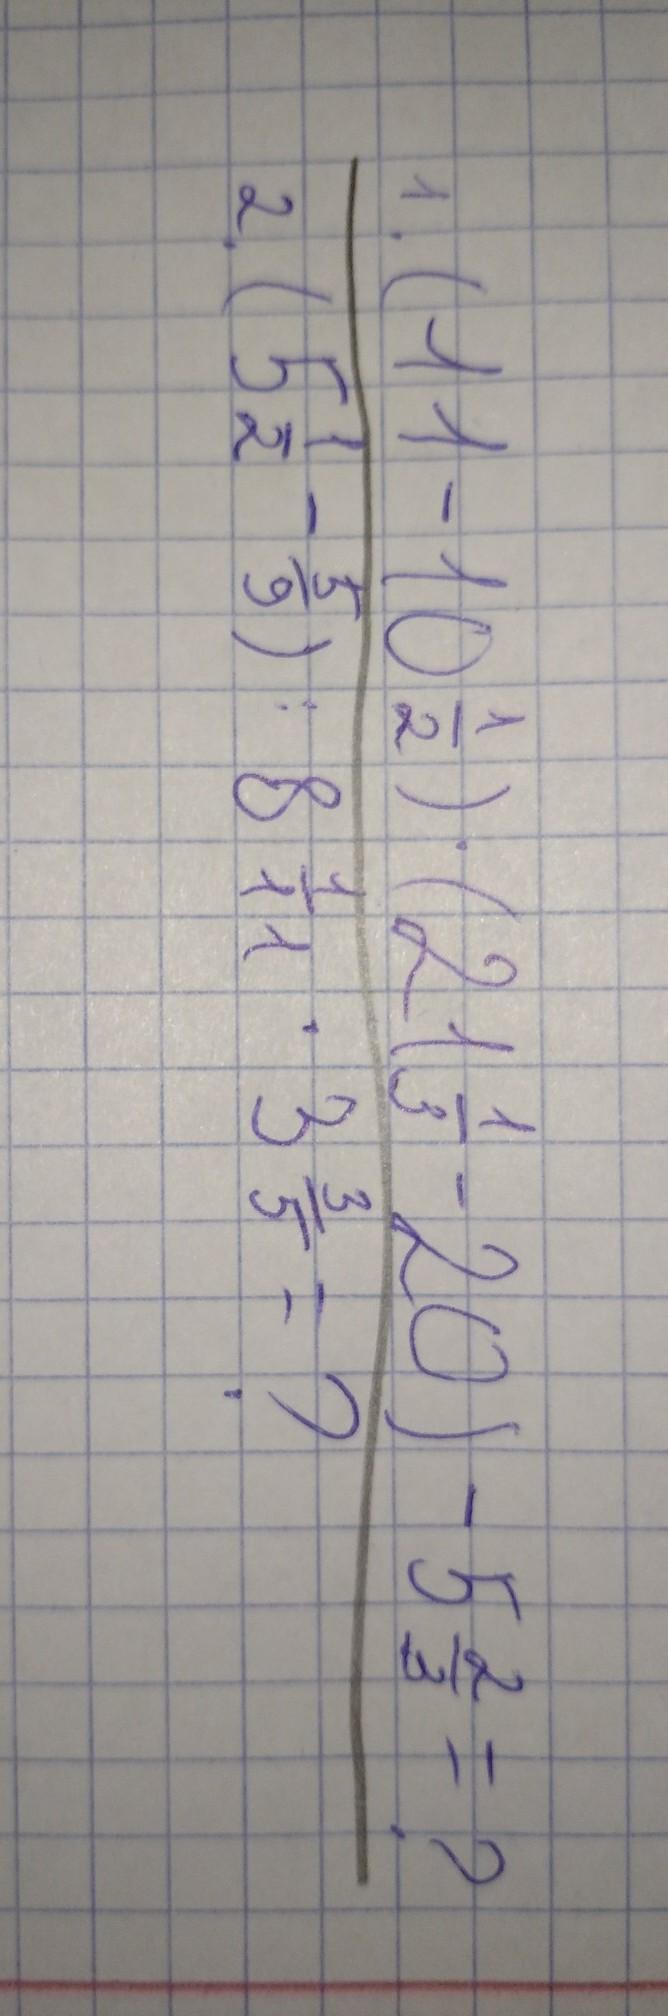 1. (11 - 10 1/2) · (21 1/3 - 20) - 5 2/3 = ?
2. (5 1/2 - 5/9) : 8 1/11 · 3 3/5 = ?